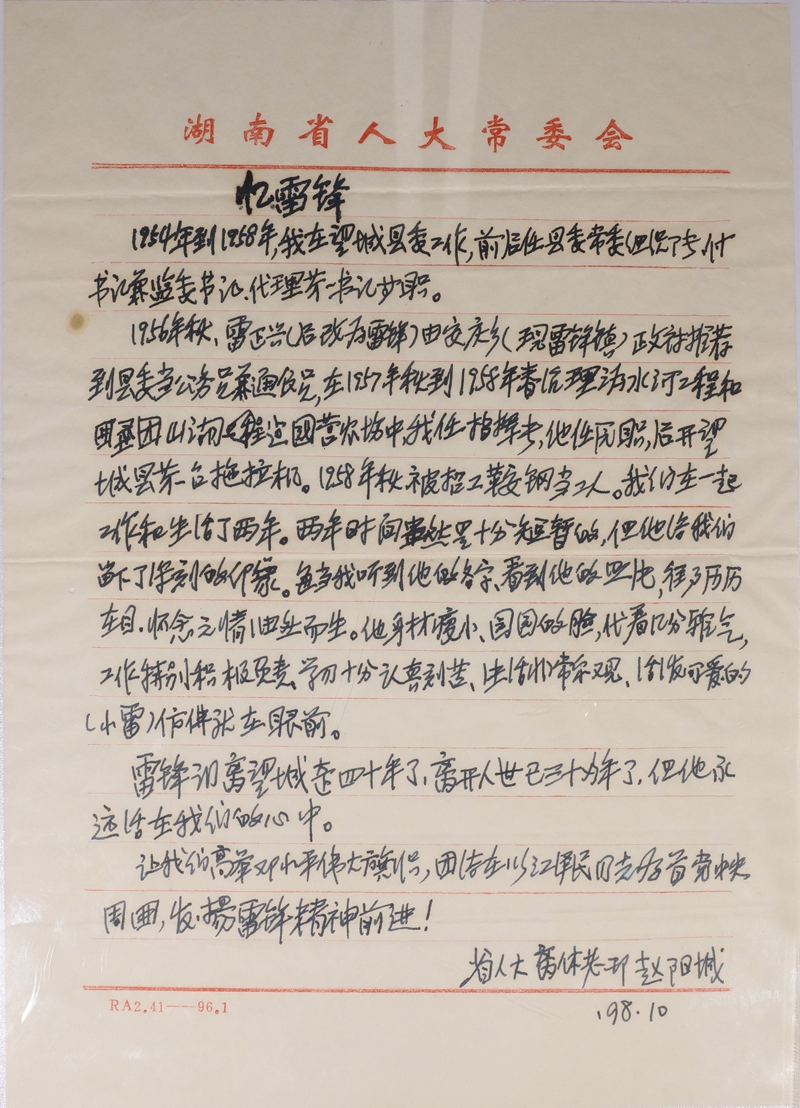 湖南省人大常委会
忆雷锋
1954年到1958年,我在望城县委工作,前后任县委常委
书记兼监委书记、代理第一书记等职。
1956年秋、雷正兴(后改为雷锋)由安庆乡(现雷锋镇)政府推荐
到县委当公务员兼通讯员,在1957年秋到1958年春治理沩水河工程和
团山湖工程建国营农场中,我任指挥长,他任民职,后开望
城县第一台拖拉机。1958年秋被招工鞍钢当工人。我们在一起
工作和生活了两年。两年时间虽然是十分短暂的,但他给我们
留下了深刻的印象。每当我听到他的名字、看到他的照片,往事历历
在目.怀念之情油然而生。他身材瘦小、圆圆的脸,代着几分稚气,
工作特别积极负责、学习十分认真刻苦、生活非常乐观、活泼可爱的
(小雷)仿佛就在眼前。
雷锋调离望城走四十年了,离开人世已三十多年了,但他永
远活在我们的心中。
让我们高举邓小平伟大旗帜,团结在以江泽民同志为首党中央
周围,发揚雷锋精神前进!
省人大离休老干 赵阳城
98.10
RA2.41——96.1